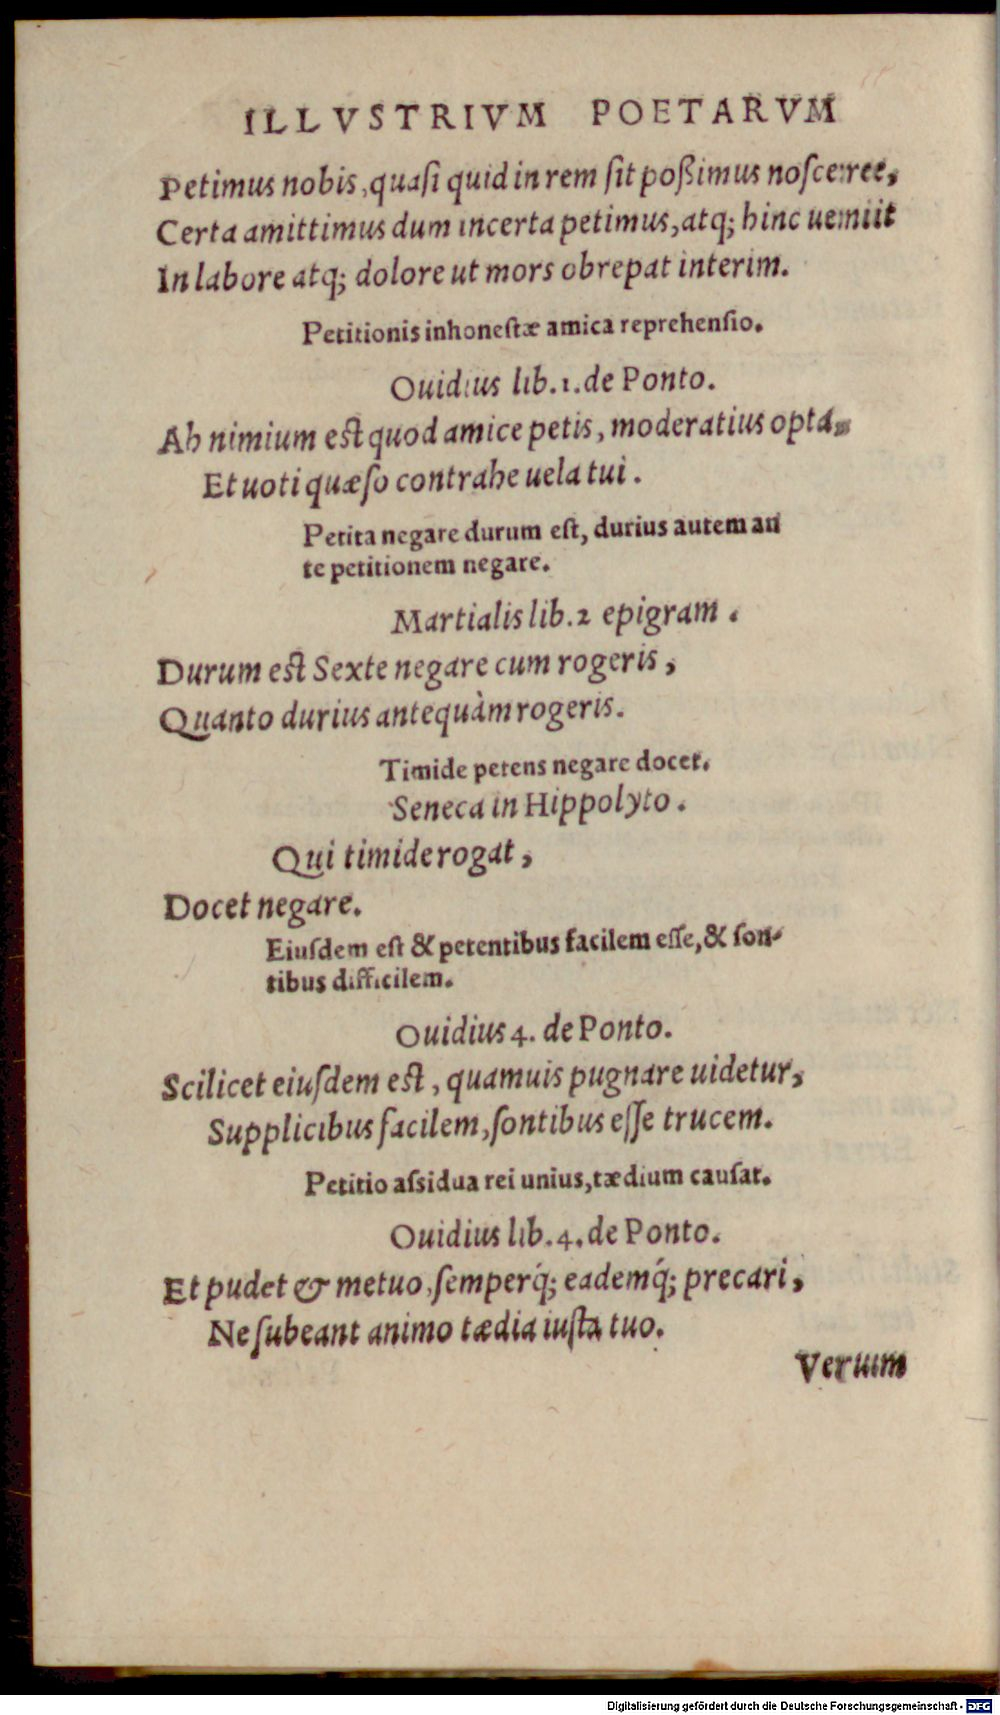 ILLVSTRIVM POETARVM
Petimus nobis, quasi quid in rem sit poßimus noscere,
Certa amittimus dum incerta petimus, atq; hinc ueniit
In labore atq; dolore ut mors obrepat interim.
Petitionis inhonestæ amica reprehensio.
Ouidius lib.1.de Ponto.
Ah nimium est quod amice petis, moderatius opta,
Et uoti quæso contrahe uela tui.
Petita negare durum est, durius autem an
te petitionem negare.
Martialis lib.2 epigram.
Durum est Sexte negare cum rogeris,
Quanto durius antequàm rogeris.
Timide petens negare docet.
Seneca in Hippolyto.
Qui timide rogat,
Docet negare.
Eiusdem est & petentibus facilem esse, & son-
tibus difficilem.
Ouidius 4. de Ponto.
Scilicet eiusdem est, quamuis pugnare uidetur,
Supplicibus facilem, sontibus esse trucem.
Petitio assidua rei unius, tædium causat.
Ouidius lib.4.de Ponto.
Et pudet & metuo, semperq́; eademq́; precari,
Ne subeant animo tædia iusta tuo.
Verum
Digitalisierung gefördert durch die Deutsche Forschungsgemeinschaft - DFG